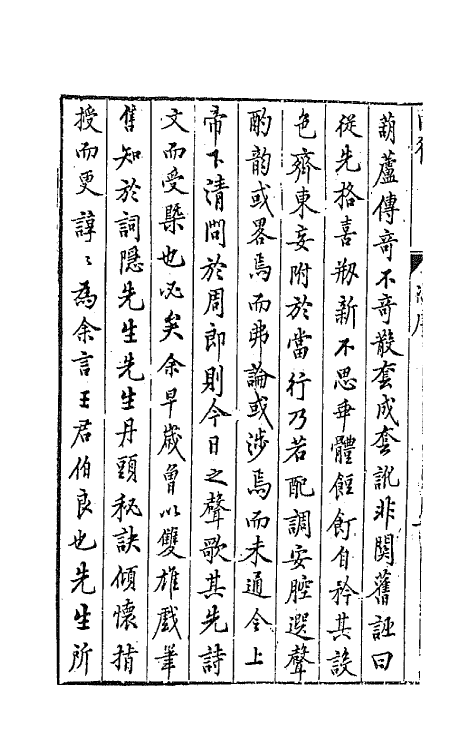 葫蘆傳竒不竒散套成套訛非関舊誣曰
從先格喜剏新不思乖體餖飣自矜其設
色齊東妄附於當行乃若配調安腔選聲
酌韵或畧焉而弗論或涉焉而未通令上
帝下清問於周郎則今日之聲歌其先詩
文而受槩也必矣余早歲曾以雙雄戲筆
售知於詞隱先生先生丹頭秘訣傾懷指
授而更諄〻為余言王君伯良也先生所